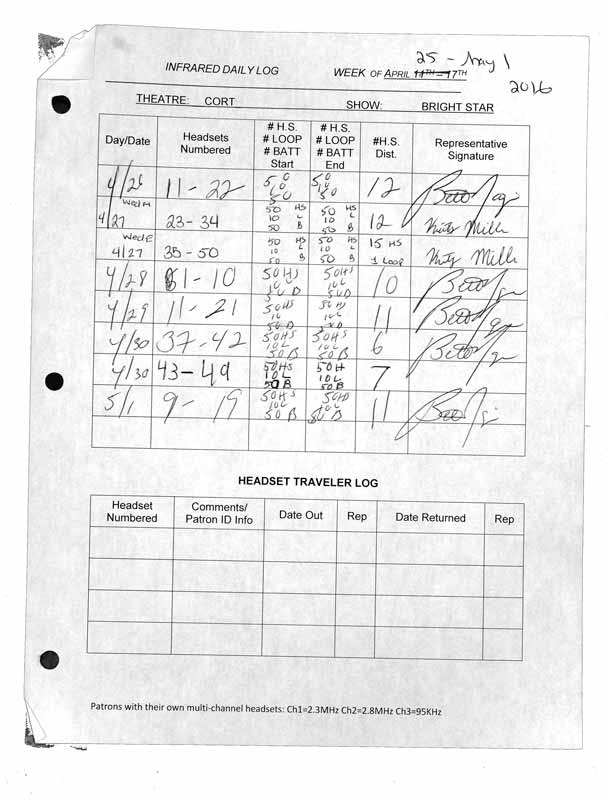 25 - May 1
INFRARED DAILY LOG WEEK OF APRIL 11TH - 17TH
2016
THEATRE: CORT SHOW: BRIGHT STAR
Day/Date Headsets Numbered # H.S. # LOOP # BATT Start # H.S. # LOOP # BATT End #H.S. Dist. Representative Signature
4/26 11 - 22 50 10 50 50 10 50 12
Wed M 4/27 23 - 34 50 HS 10 L 50 B 50 HS 10 L 50 B 12 Mills
Wed E 4/27 35 - 50 50 HS 10 L 50 B 50 HS 10 L 50 B 15 HS 1 Loop Mills
4/28 1 - 10 50HS 10L 50B 50HS 10L 50B 10
4/29 11 - 21 50HS 10L 50B 50HS 10L 50B 11
4/30 37 - 42 50HS 10L 50B 50HS 10L 50B 6
4/30 43 - 49 50HS 10L 50B 50H 10L 50B 7
5/1 9 - 19 50HS 10L 50B 50HS 10L 50B 11
HEADSET TRAVELER LOG
Headset Numbered Comments/ Patron ID Info Date Out Rep Date Returned Rep
Patrons with their own multi-channel headsets: Ch1=2.3MHz Ch2=2.8MHz Ch3=95KHz